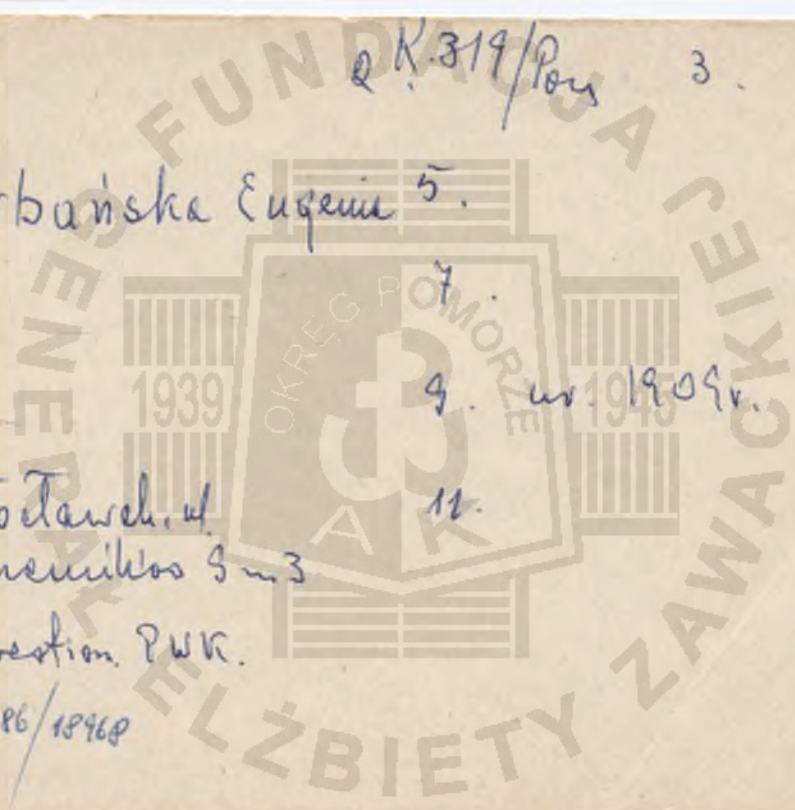 K.319/Pom 3.
bańska Eugenia 5.
7.
9. ur. 1909r.
ocławek, ul. 11.
9 m 3
PWK.
86/1896
FUNDACJA GENERAŁ ELŻBIETY ZAWACKIEJ
OKRĘG POMORZE
1939 1945
AK